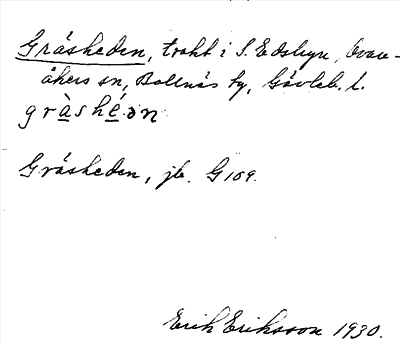 Gråsheden, trakt i S. Edsbyn, Ovan-
åkers sn, Bollnäs tg, Gävleb. l.
gràshéɔn
Gråsheden, jb. G 109.
Erik Eriksson 1930.